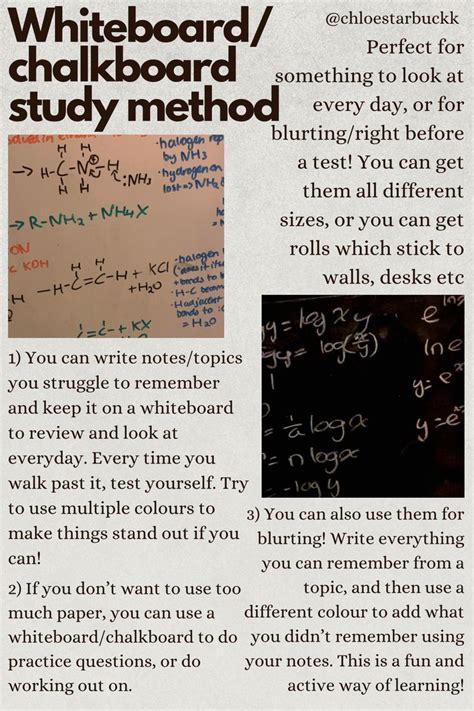 Whiteboard/
chalkboard
study method
@chloestarbuckk
Perfect for
something to look at
every day, or for
blurting/right before
a test! You can get
them all different
sizes, or you can get
rolls which stick to
walls, desks etc
halogen rep
by NH₃
hydrogen on
lost => NH₂
:NH₃
→ R-NH₂ + NH₄X
ON
C KOH
halogen
+ KCl
+H₂O
= H₂O
+ KX
y = log x y
e
log(x/y)
ln e
1
y = e
= 1/a log x
y = e
= n log x
= -log y
1) You can write notes/topics
you struggle to remember
and keep it on a whiteboard
to review and look at
everyday. Every time you
walk past it, test yourself. Try
to use multiple colours to
make things stand out if you
can!
2) If you don’t want to use too
much paper, you can use a
whiteboard/chalkboard to do
practice questions, or do
working out on.
3) You can also use them for
blurting! Write everything
you can remember from a
topic, and then use a
different colour to add what
you didn’t remember using
your notes. This is a fun and
active way of learning!